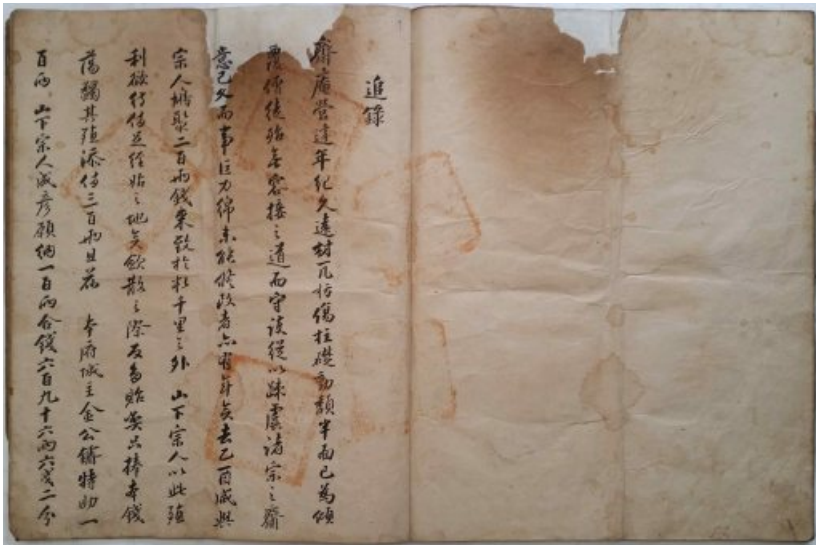 追錄
齋庵營建年紀久遠材瓦朽傷柱礎動頹半而已爲傾
覆倚後殆無容接之道而守護從以疎虞諸宗之齋
意已久而事巨力綿未能修改者亦有年矣去乙酉咸興
宗人鳩聚二百兩錢來致於千里之外 山下宗人以此殖
利欲待其經始之地矣斂散之際反多貽弊只捧本錢
蕩蠲其殖添付三百兩且花 本府城主金公鏽特助一
百兩 山下宗人咸彦願納一百兩合錢六百九十六兩六戔二分